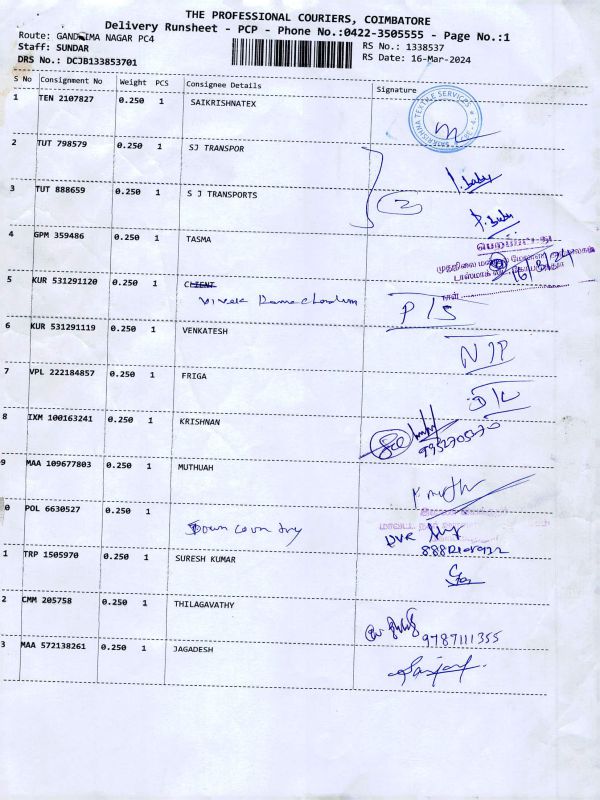 THE PROFESSIONAL COURIERS, COIMBATORE
Delivery Runsheet - PCP - Phone No.:0422-3505555 - Page No.:1
Route: GANDHIMA NAGAR PC4
RS No.: 1338537
Staff: SUNDAR
RS Date: 16-Mar-2024
DRS No.: DCJB133853701
S No Consignment No Weight PCS Consignee Details Signature
1 TEN 2107827 0.250 1 SAIKRISHNATEX
2 TUT 798579 0.250 1 SJ TRANSPOR
3 TUT 888659 0.250 1 S J TRANSPORTS
2
4 GPM 359486 0.250 1 TASMA
16/3/24
5 KUR 531291120 0.250 1 CLIENT
P/S
6 KUR 531291119 0.250 1 VENKATESH
7 VPL 222184857 0.250 1 FRIGA
D/L
8 IXM 100163241 0.250 1 KRISHNAN
9 MAA 109677803 0.250 1 MUTHUAH
0 POL 6630527 0.250 1 Down country
1 TRP 1505970 0.250 1 SURESH KUMAR
2 CMM 205758 0.250 1 THILAGAVATHY
9787111355
3 MAA 572138261 0.250 1 JAGADESH